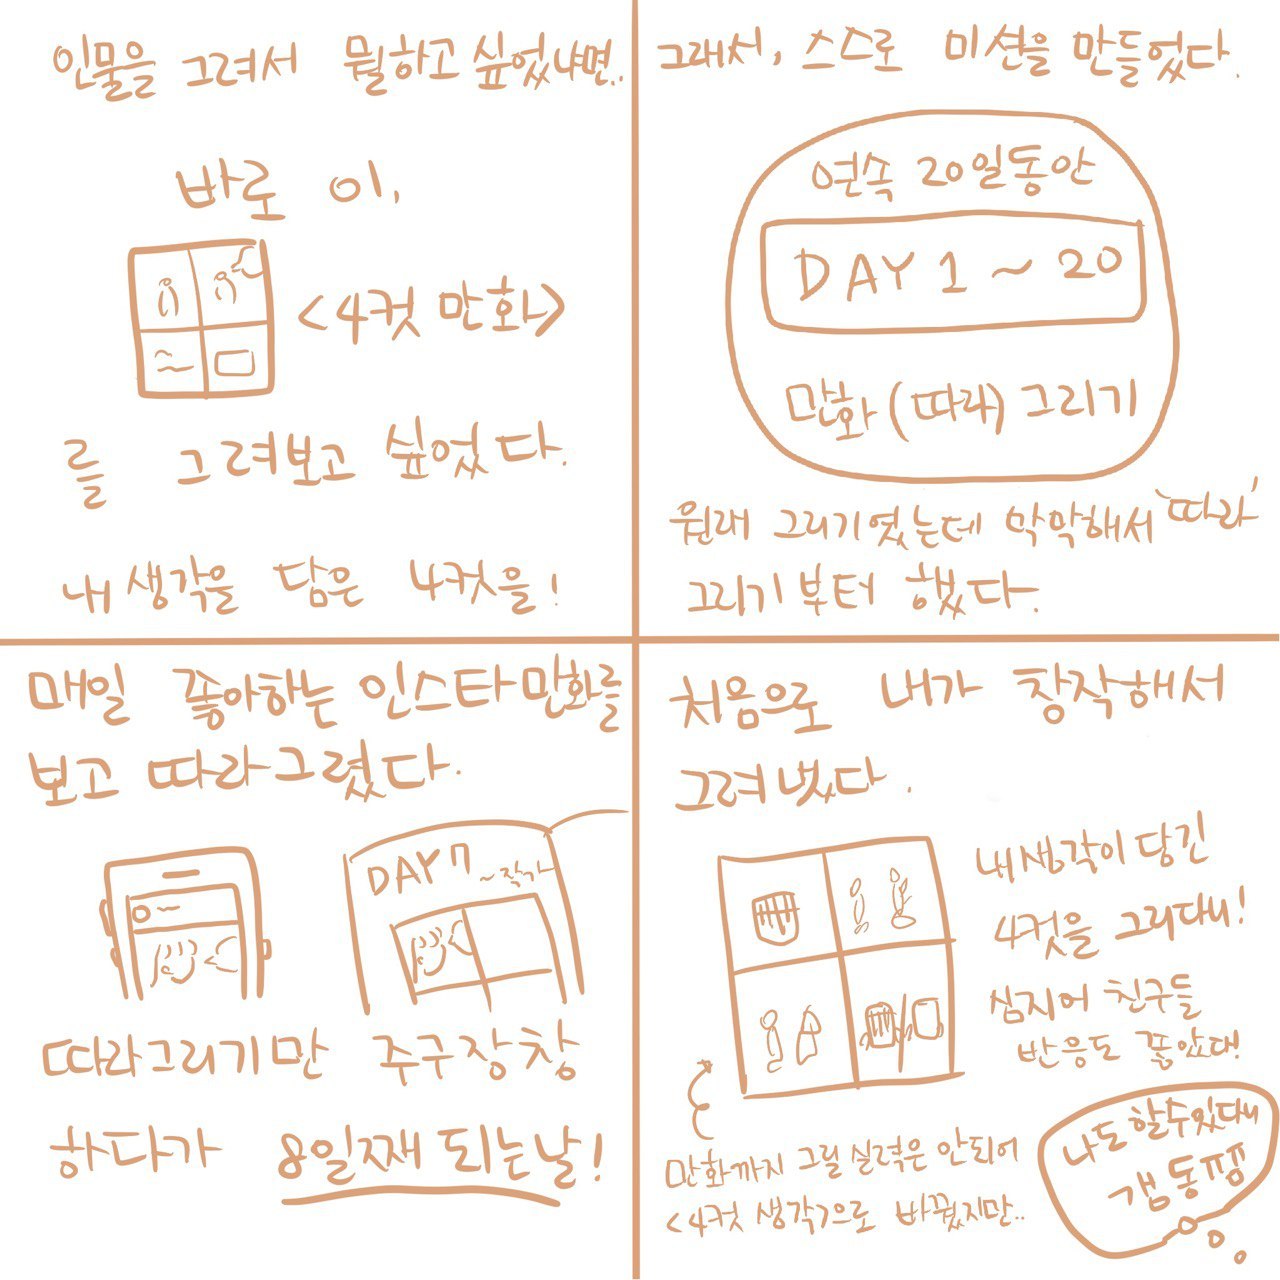 인물을 그려서 뭘하고 싶었냐면..
바로 이,
<4컷 만화>
를 그려보고 싶었다.
내 생각을 담은 4컷을!
그래서, 스스로 미션을 만들었다.
연속 20일동안
DAY 1 ~ 20
만화 (따라) 그리기
원래 그리기였는데 막막해서 '따라'
그리기부터 했다.
매일 좋아하는 인스타만화를
보고 따라그렸다.
DAY 7
~작가
따라그리기만 주구장창
하다가 8일째 되는날!
처음으로 내가 창작해서
그려냈다.
내생각이 담긴
4컷을 그리다니!
심지어 친구들
반응도 좋았대!
만화까지 그릴 실력은 안되어
<4컷 생각>으로 바꿨지만..
나도 할수있다니
갬동ㅠㅠ